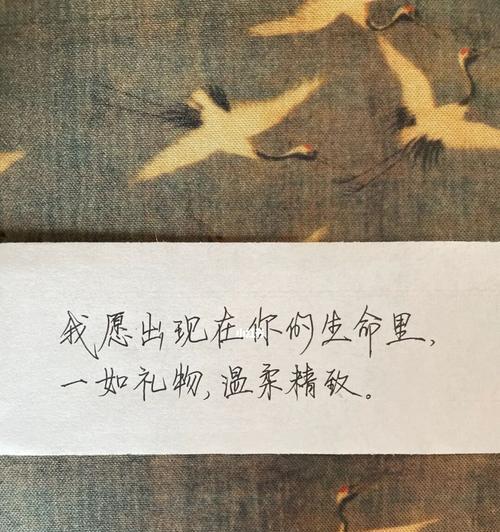 我愿出现在你的生命里,
一如礼物,温柔精致。